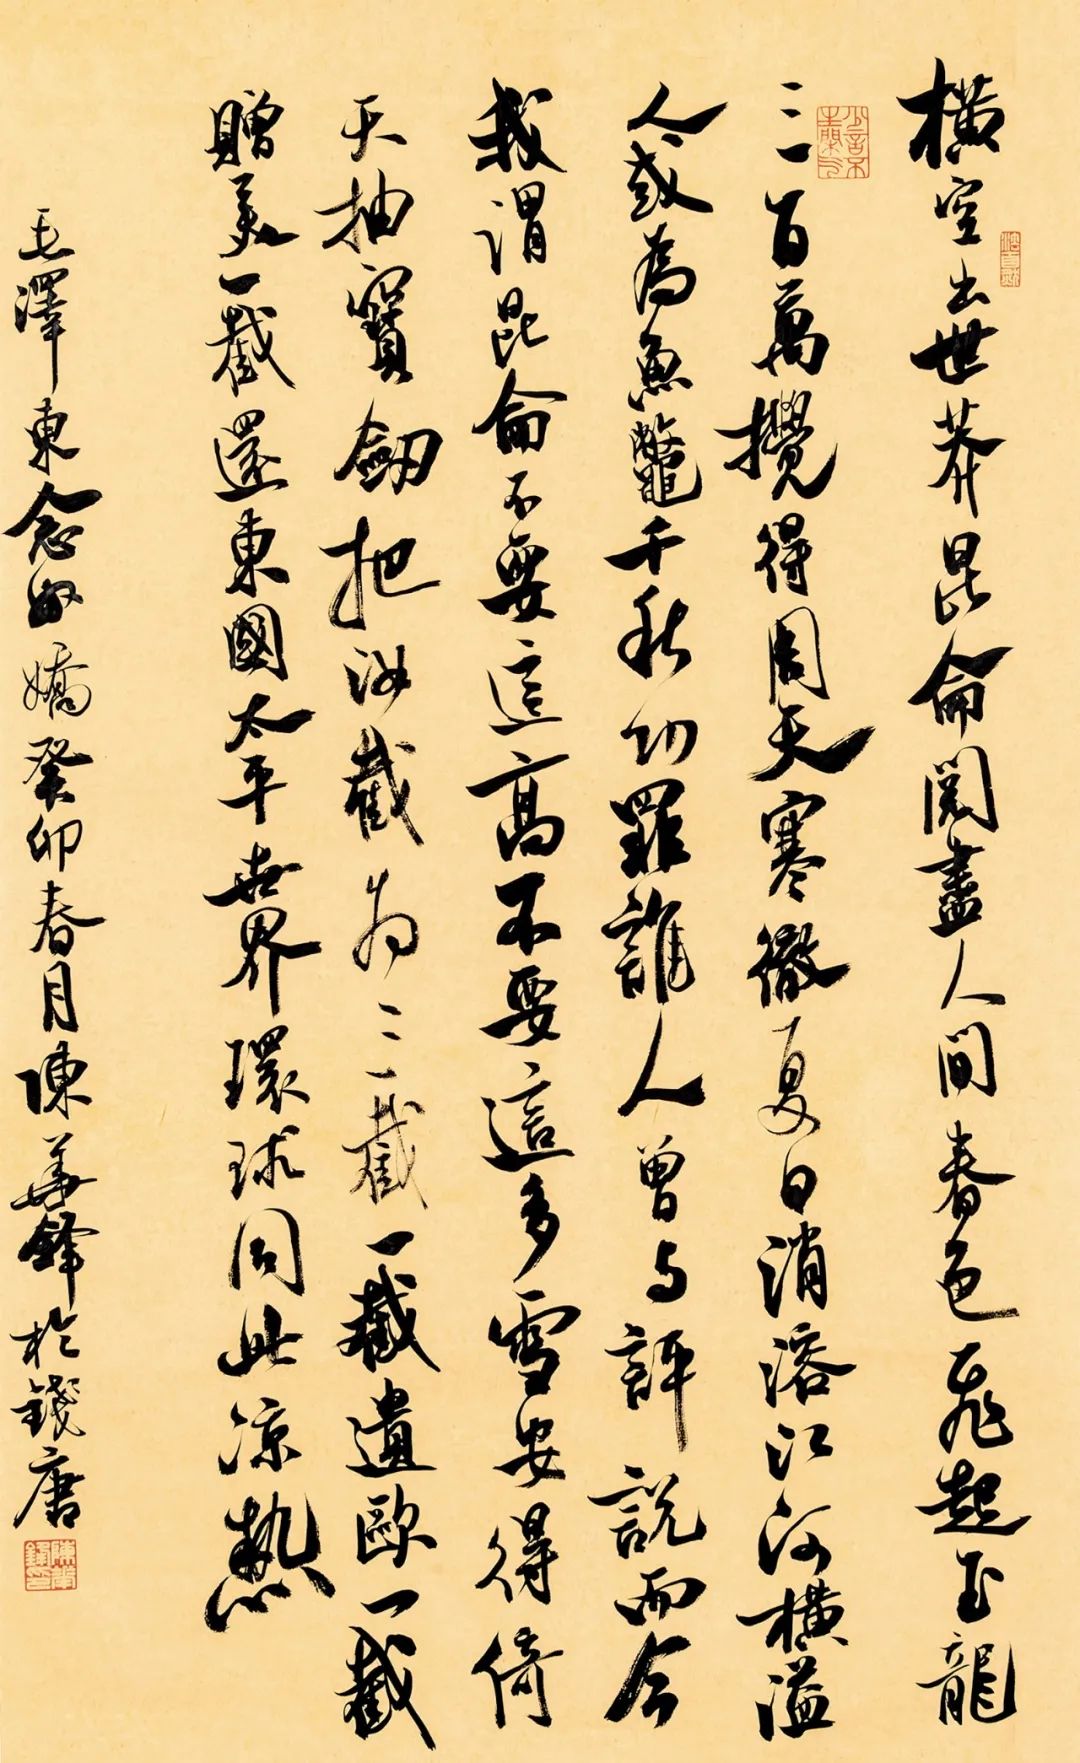 橫空出世莽昆侖閱盡人間春色飛起玉龍
三百萬攪得周天寒徹夏日消溶江河橫溢
人或為魚鼈千秋功罪誰人曾与評說而今
我謂昆侖不要這高不要這多雪安得倚
天抽寶劒把汝截为三截一截遺歐一截
贈美一截還東國太平世界環球同此凉熱
毛澤東念奴嬌癸卯春月陳華鋒於錢唐
陳華鋒印